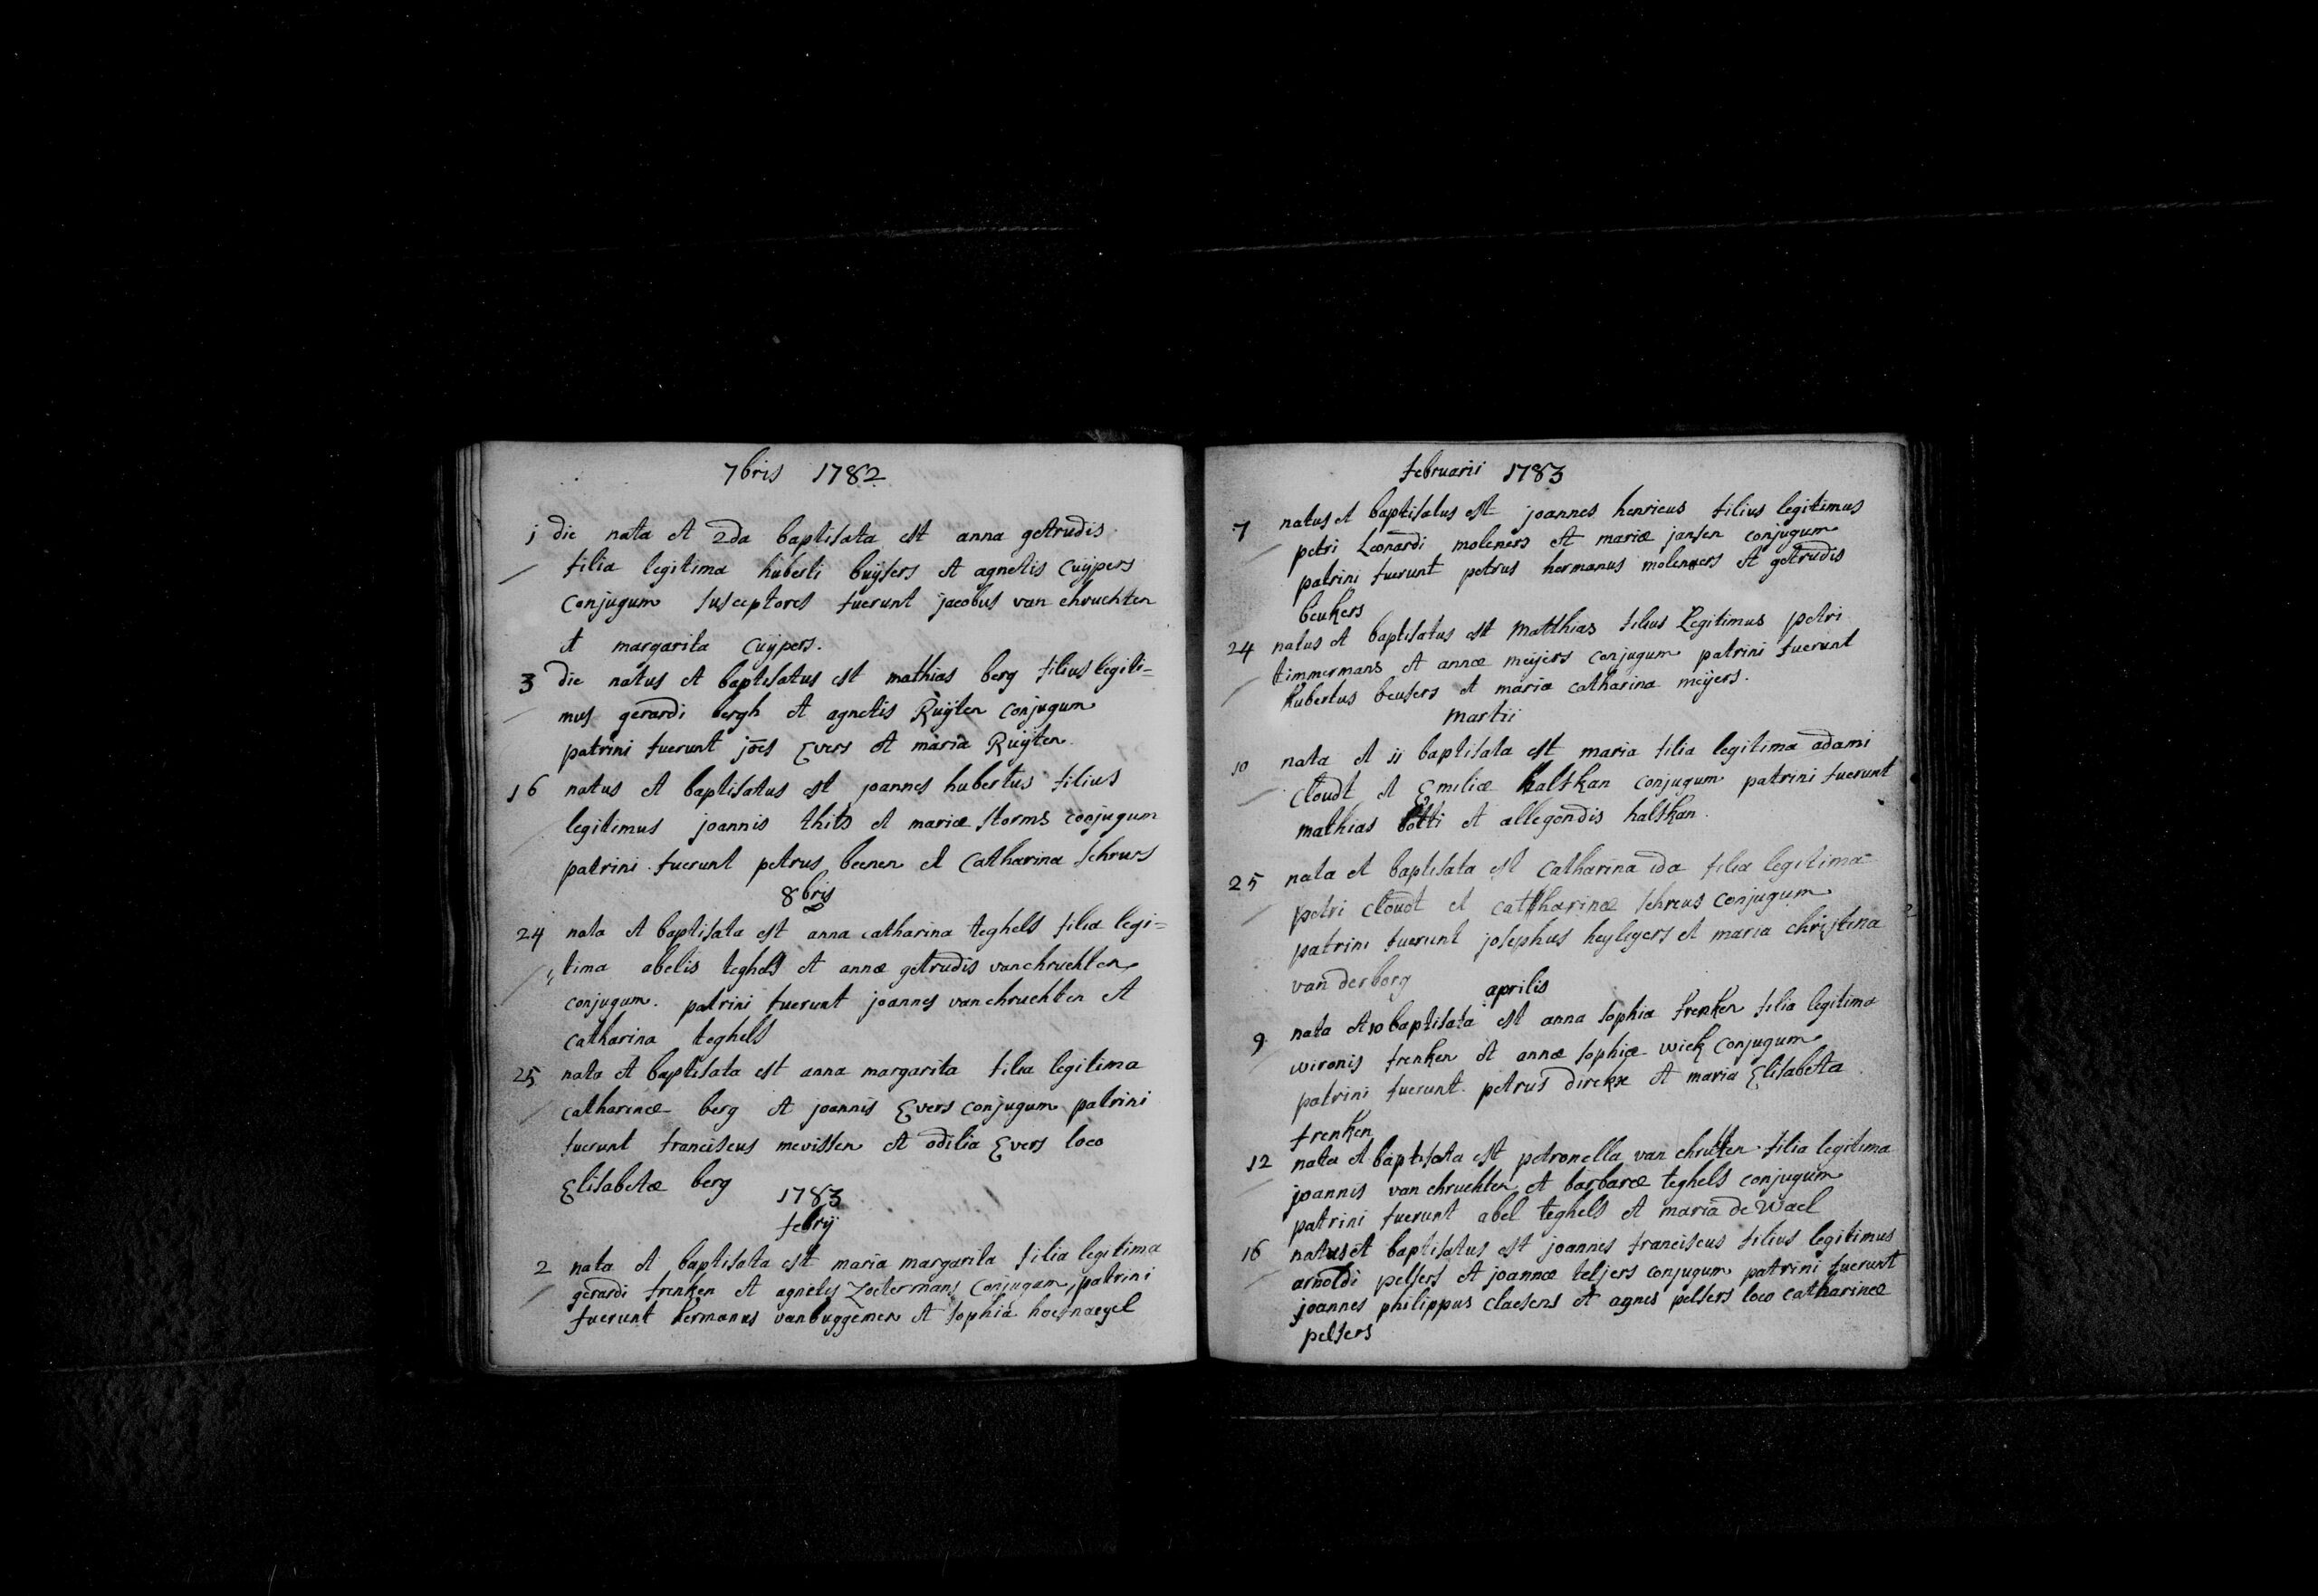 7bris 1782
1 die nata et 2da baptisata est anna getrudis
filia legitima huberti buijsers et agnetis Cuijpers
Conjugum susceptores fuerunt jacobus van chruchten
et margarita Cuijpers.
3 die natus et baptisatus est mathias berg filius legiti=
mus gerardi bergh et agnetis Ruijten Conjugum
patrini fuerunt jões Evers et maria Ruijten
16 natus et baptisatus est joannes hubertus filius
legitimus joannis thits et mariæ storms conjugum
patrini fuerunt petrus beenen et Catharina schrurs
8bris
24 nata et baptisata est anna catharina teghels filia legi=
tima abelis teghels et annæ getrudis van chruchten
conjugum. patrini fuerunt joannes van chruchten et
catharina teghels
25 nata et baptisata est anna margarita filia legitima
catharinæ berg et joannis Evers conjugum patrini
fuerunt franciscus mevissen et odilia Evers loco
Elisabetæ berg
1783
febrij
2 nata et baptisata est maria margarita filia legitima
gerardi frenken et agnetis Zoetermans Conjugum, patrini
fuerunt hermanus van buggemen et sophia hoefnaegel
februarii 1783
7 natus et baptisatus est joannes henricus filius legitimus
petri Leonardi moleners et mariæ jansen conjugum
patrini fuerunt petrus hermanus molenners et getrudis
beukers
24 natus et baptisatus est Matthias filius Legitimus petri
timmermans et annæ meijers conjugum patrini fuerunt
hubertus beusers et maria catharina meijers.
Martii
10 nata et 11 baptisata est maria filia legitima adami
Cloudt et Emiliæ halskan conjugum patrini fuerunt
mathias botti et allegondis halskan.
25 nata et baptisata est Catharina ida filia legitima
petri Cloudt et catharinæ schreus conjugum
patrini fuerunt josephus heyligers et maria christina
van derborg
aprilis
9 nata et 10 baptisata est anna sophia frenken filia legitima
wironis frenken et annæ sophiæ wick conjugum
patrini fuerunt petrus dirckx et maria Elisabeta
frenken
12 nata et baptisata est petronella van chruften filia legitima
joannis van chruchten et barbaræ teghels conjugum
patrini fuerunt abel teghels et maria de Wael
16 natus et baptisatus est joannes franciscus filius legitimus
arnoldi pelsers et joannæ teljers conjugum patrini fuerunt
joannes philippus claesens et agnes pelsers loco catharinæ
pelsers